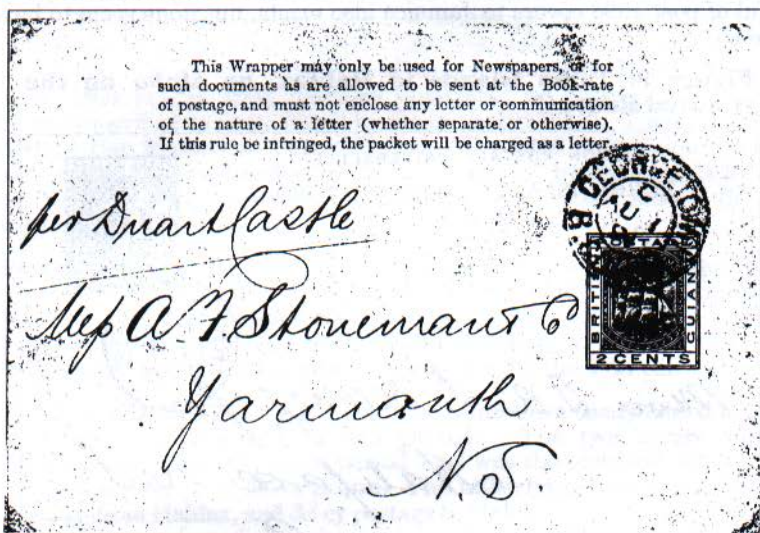 This Wrapper may only be used for Newspapers, or for
such documents as are allowed to be sent at the Book-rate
of postage, and must not enclose any letter or communication
of the nature of a letter (whether separate or otherwise).
If this rule be infringed, the packet will be charged as a letter.
per Duart Castle
GEORGETOWN
C
AU 1
POSTAGE
BRITISH
GUIANA
2 CENTS
Mess A. F. Stoneman & Co
Yarmouth
N.S.